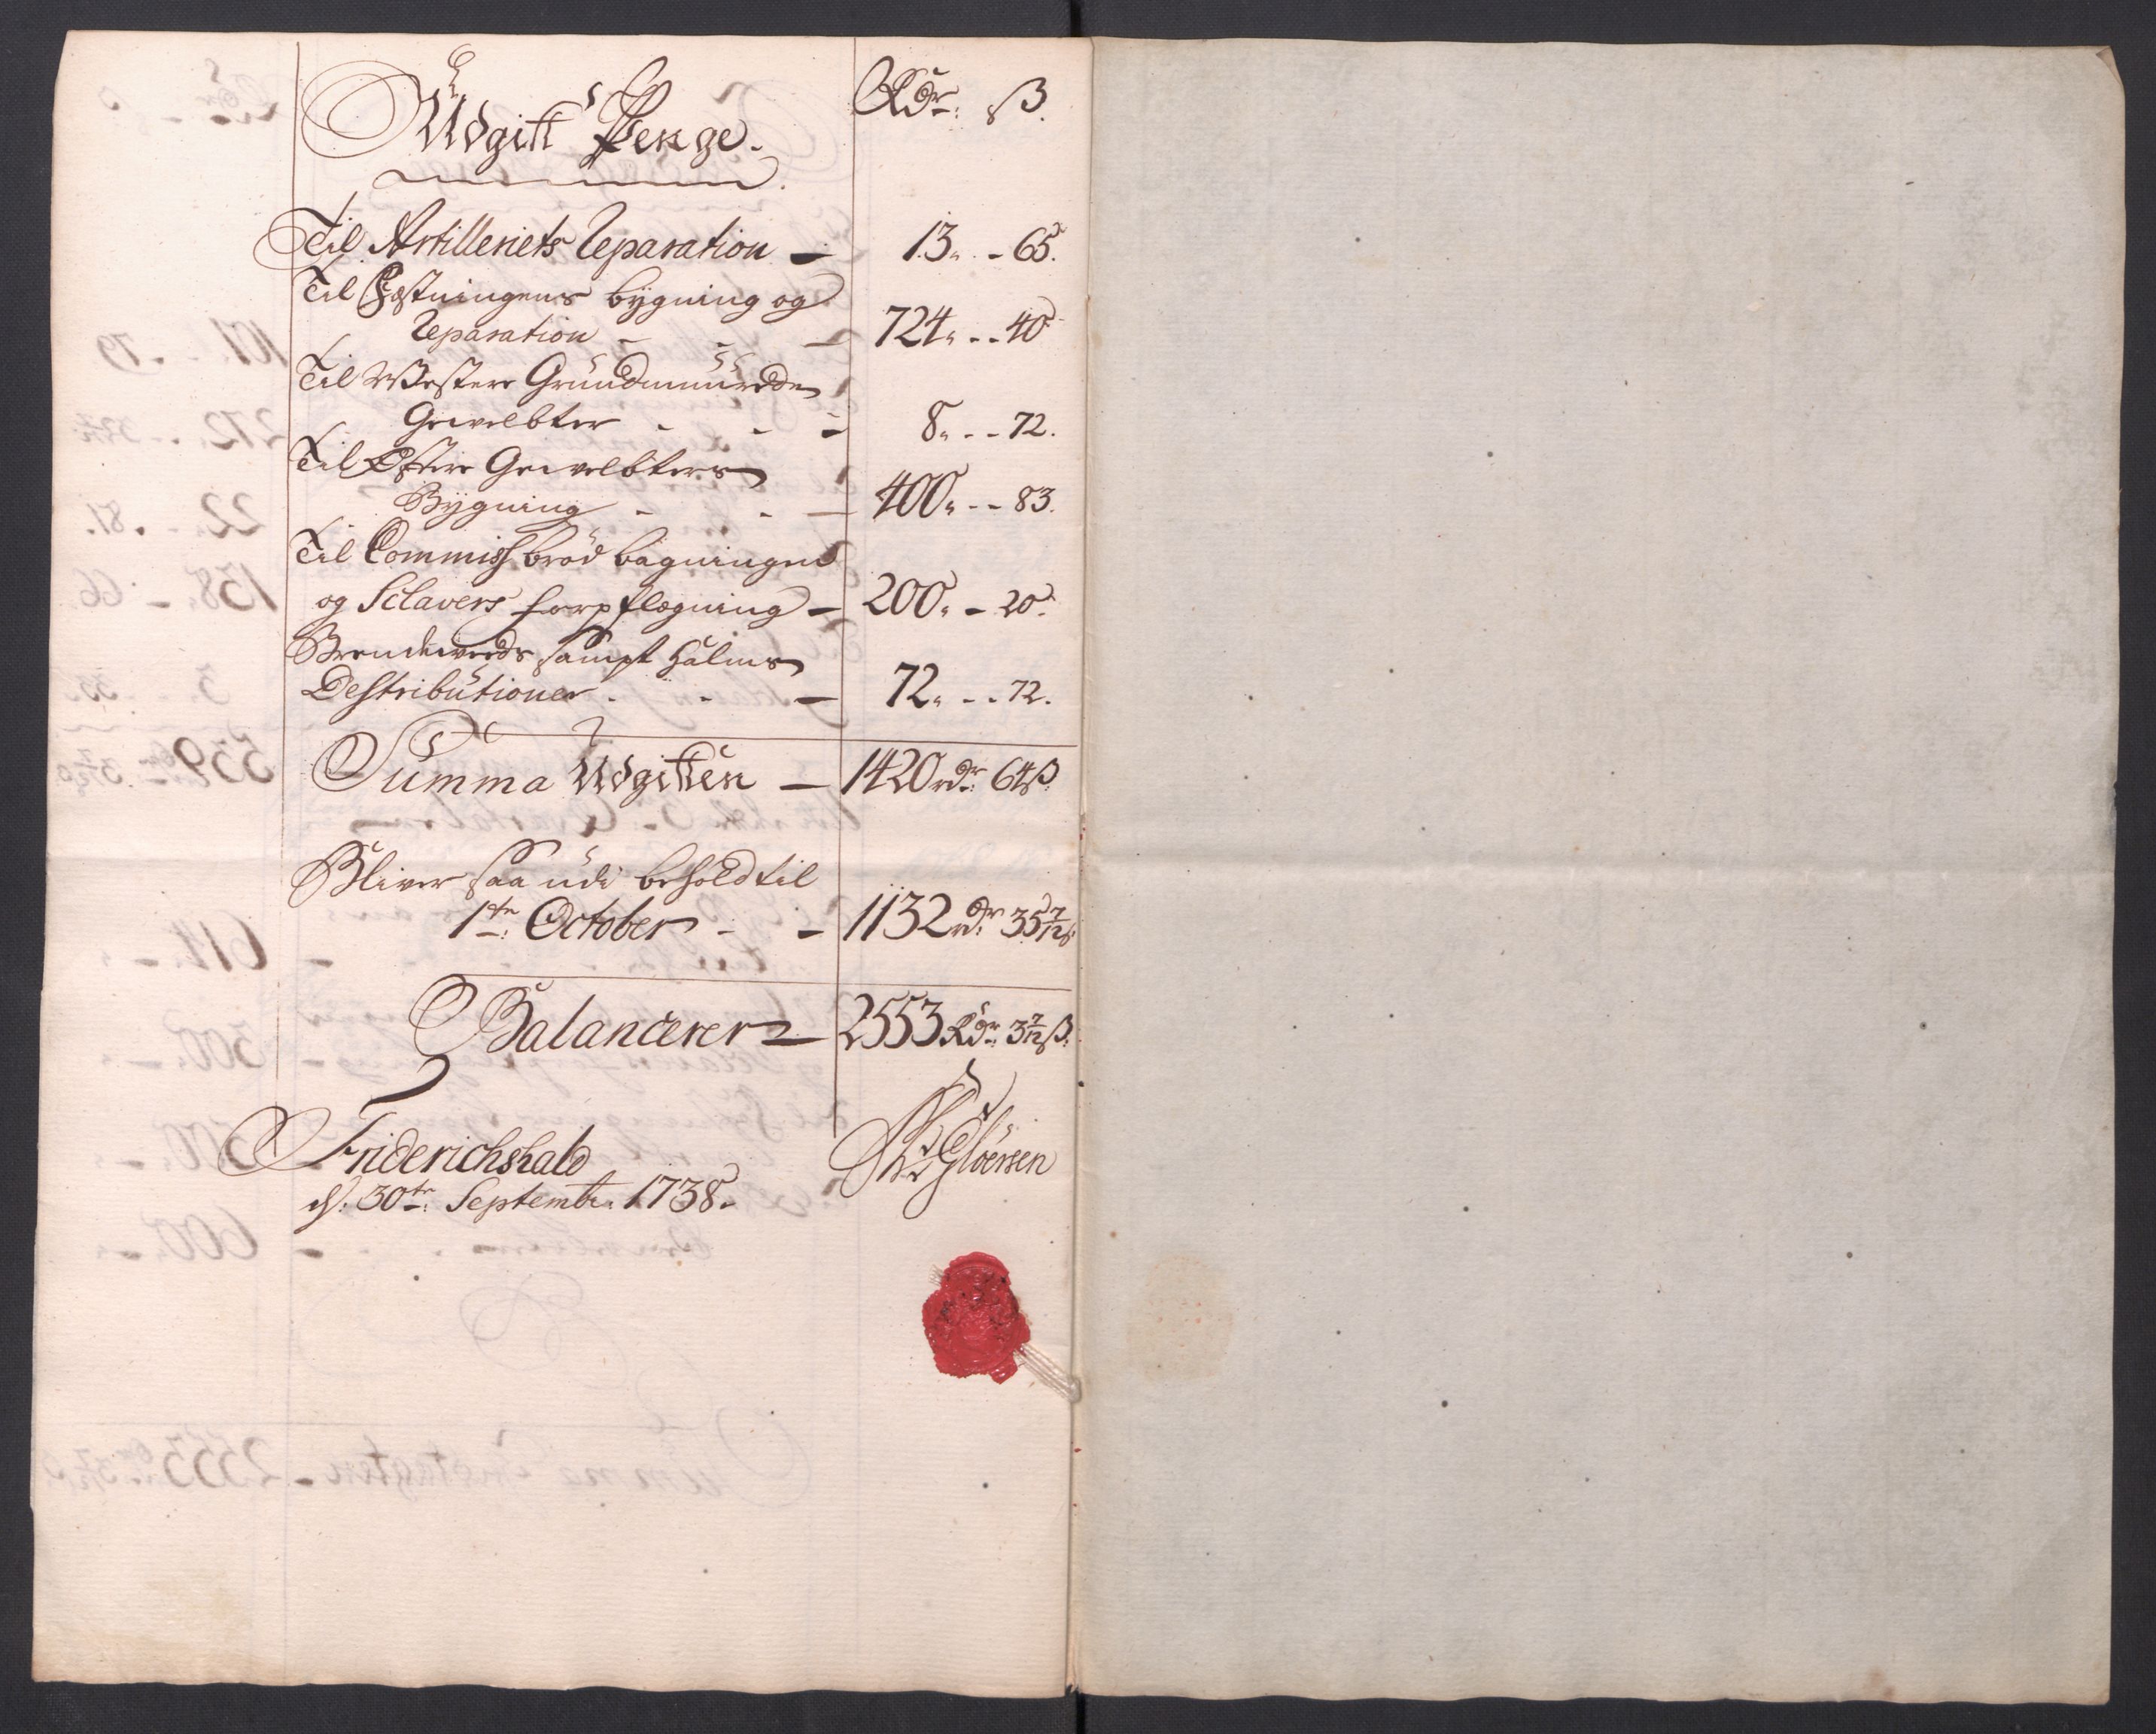 Udgift Penge. Rdr: ß.
Til Artilleriets Reparation – 13. – 65.
Til Fæstningens bÿgning og
Reparation – – – 724. – – 40
Til Westere Grundmuurede
Gewelbter – – – 8. – – 72.
Til Østere Gewelbters
Bÿgning – – – 400. – – 83.
Til Commiss brød bagningen
og Sclavers forpflegning – 200. – 20.
Brendeweeds sampt halms
Destributioner . – – 72. – – 72.
Summa Udgifften – 1420 rdr: 64 ß.
Bliver saa udi behold til
1te: October – – 1132 rdr: 35 7/12 ß
Balancerer – 2553 Rdr: 3 7/12 ß.
Friderichshald
d: 30te: Septembr: 1738.